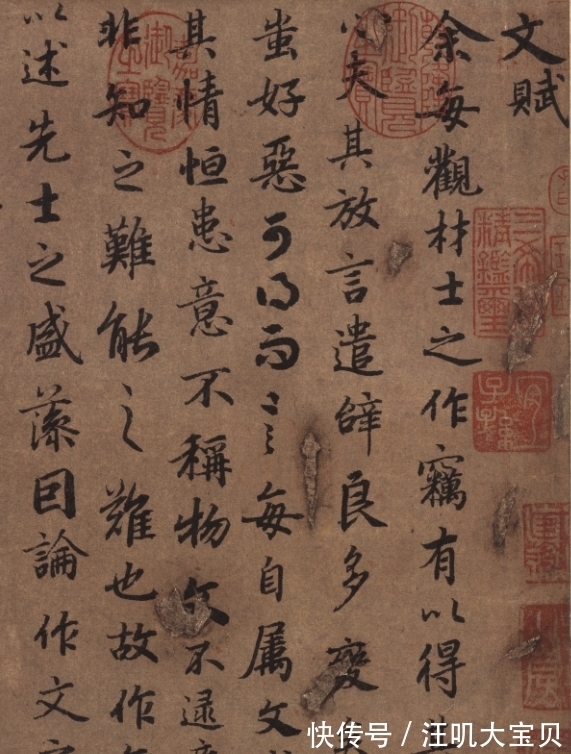 文賦
余每觀材士之作竊有以得
心夫其放言遣辝良多變
蚩好惡可得而言每自屬文
其情恒患意不稱物文不逮
非知之難能之難也故作
以述先士之盛藻因論作文
三希堂精鑑璽
宜子孫
快传号 / 汪叽大宝贝